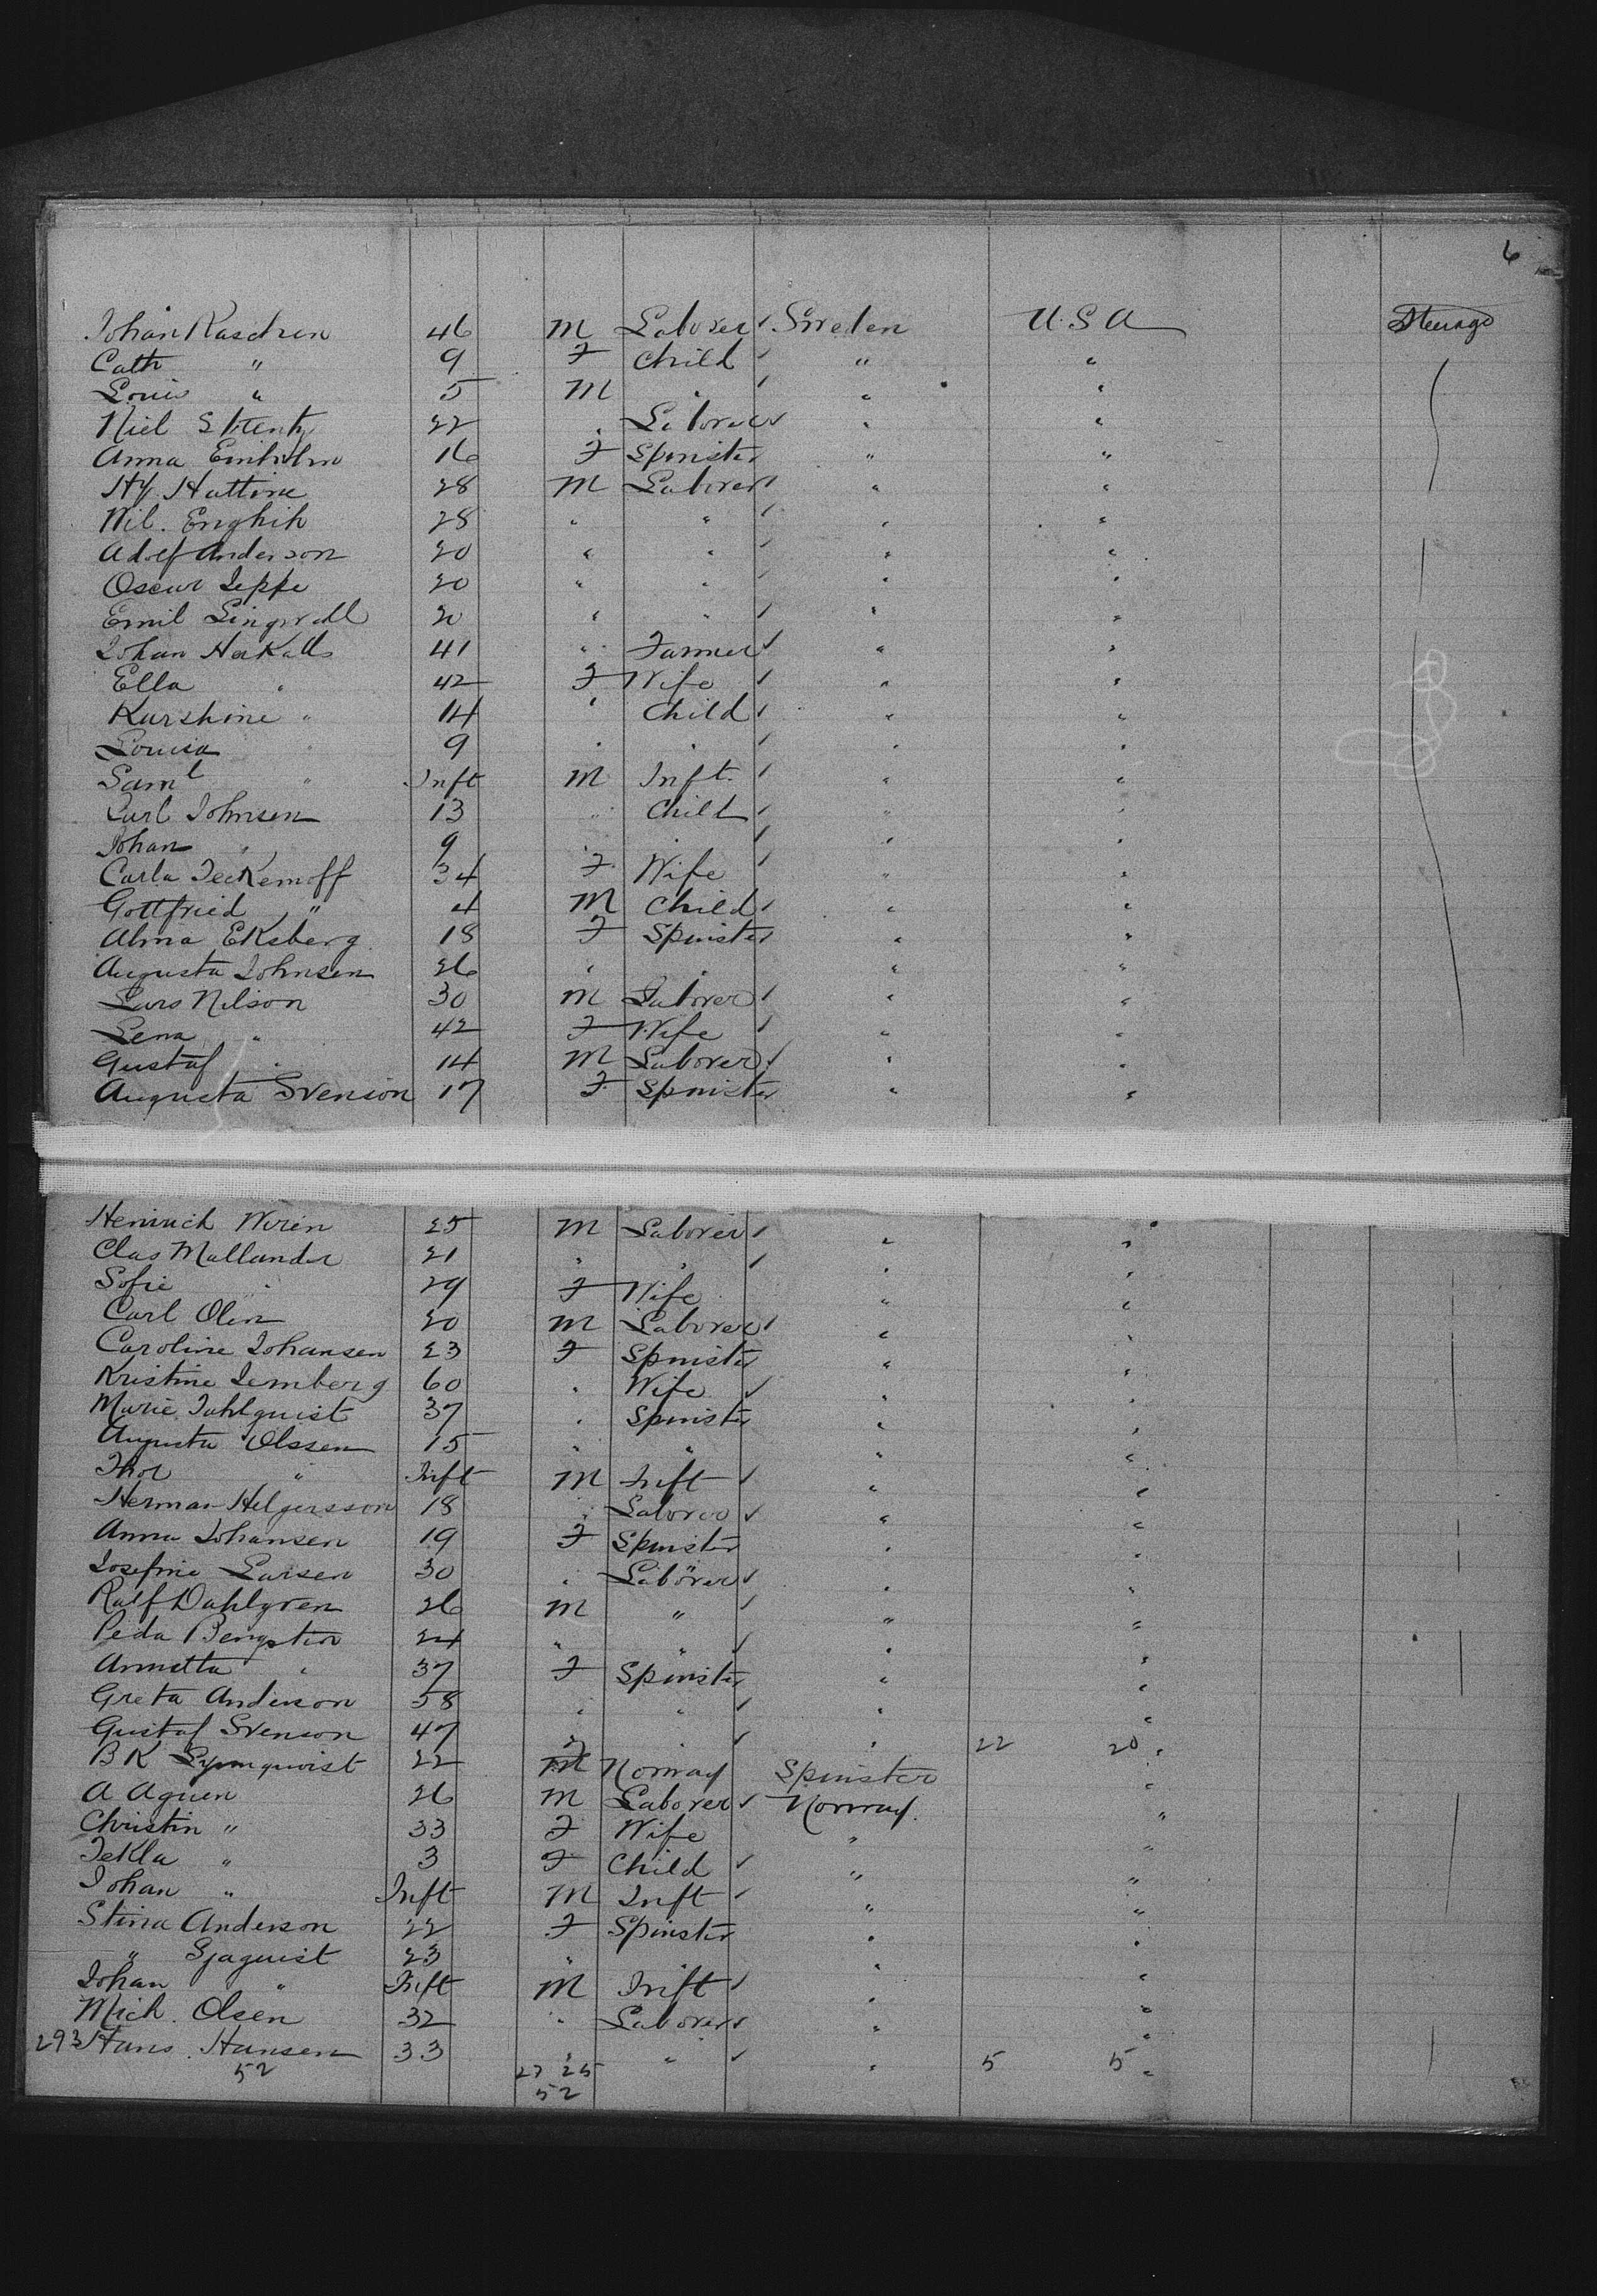 6
Johan Raschen 46 M Laborer ✓ Sweden U.S.A Steerage
Cath " 9 F Child ✓ " "
Louis " 5 M " ✓ " "
Niel 22 " Laborer ✓ " "
Anna 16 F Spinster " "
Hy Hattine 28 M Laborer ✓ " "
Wil. 28 " " ✓ " "
Adolf Anderson 20 " " ✓ " "
Oscar Seppe 20 " " ✓ " "
Emil Lingwall 20 " " ✓ " "
Johan 41 " Farmer ✓ " "
Ella " 42 F Wife ✓ " "
Karshine " 14 " Child ✓ " "
Louisa " 9 " " ✓ " "
Saml " Inft M Inft. ✓ " "
Carl Johnsen 13 " Child ✓ " "
Johan " 9 " " ✓ " "
Carla 34 F Wife ✓ " "
Gottfried " 4 M Child ✓ " "
Alma Eksberg 18 F Spinster " "
Augusta Johnsen 26 " " " "
Lars Nilson 30 M Laborer ✓ " "
Lena " 42 F Wife ✓ " "
Gustaf " 14 M Laborer ✓ " "
Augusta Svenson 17 F Spinster " "
Heinrich Wirén 25 M Laborer ✓ " "
Clas Mallander 21 " " ✓ " "
Sofie " 29 F Wife " "
Carl Olen 20 M Laborer ✓ " "
Caroline Johansen 23 F Spinster " "
Kristine Lemberg 60 " Wife ✓ " "
Marie 37 " Spinster " "
Augusta Olssen 15 " " " "
Thor " Inft M Inft ✓ " "
Herman Helgersson 18 " Laborer ✓ " "
Anna Johansen 19 F Spinster " "
Josefine Larsen 30 " Laborer ✓ " "
Ralf Dahlgren 26 M " ✓ " "
Peda 24 " " ✓ " "
Annetta " 37 F Spinster " "
Greta Anderson 58 " " ✓ " "
Gustaf Svenson 47 " " ✓ " 22 20 "
B K 22 Norway Spinster "
A Aguen 26 M Laborer ✓ Norway. "
Christin " 33 F Wife " "
Tekla " 3 F Child ✓ " "
Johan " Inft M Inft ✓ " "
Stina Anderson 22 F Spinster " "
" Sjaquist 23 " " "
Johan " Inft M Inft ✓ " "
Mich. Olsen 32 " Laborer ✓ " "
293 Hans Hansen 33 " " ✓ " 5 5 "
52 27 25
52